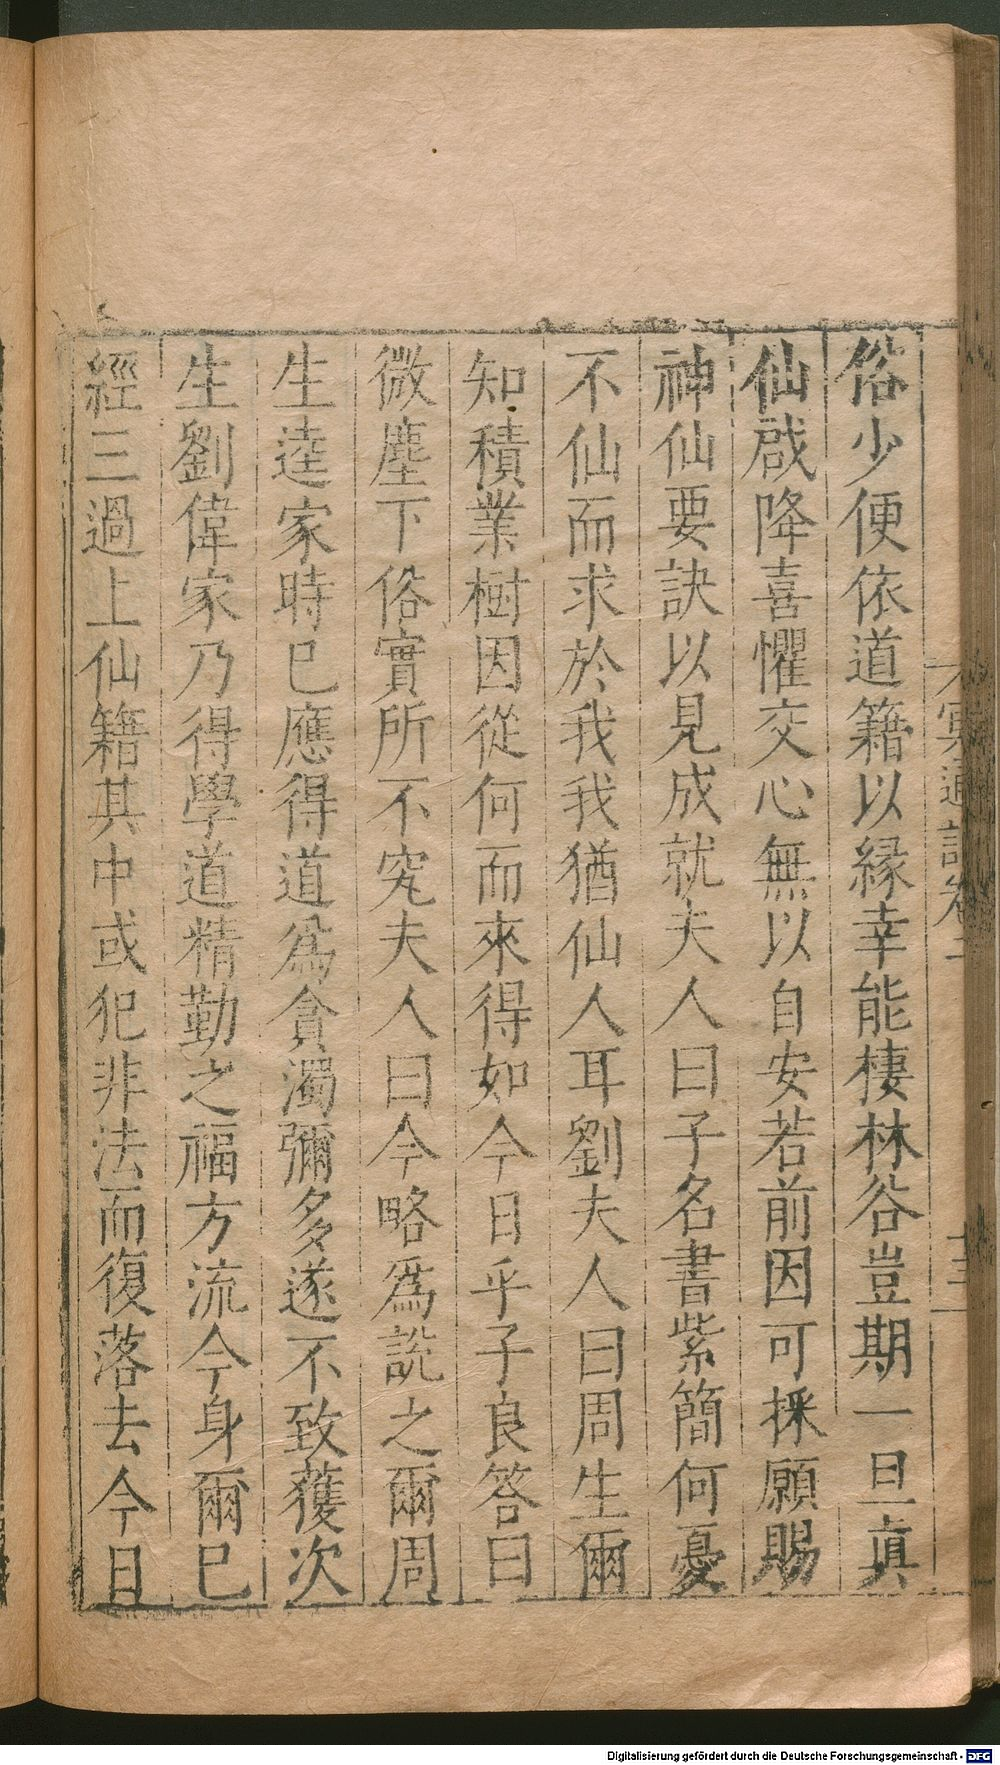 俗少便依道籍以緣幸能棲林谷豈期一旦眞
仙啟降喜懼交心無以自安若前因可採願賜
神仙要訣以見成就夫人曰子名書紫簡何憂
不仙而求於我我猶仙人耳劉夫人曰周生爾
知積業樹因從何而來得如今日乎子良答曰
微塵下俗實所不究夫人曰今略爲說之爾周
生逵家時已應得道爲貪濁彌多遂不致獲次
生劉偉家乃得學道精勤之福方流今身爾已
經三過上仙籍其中或犯非法而復落去今日
冥通記卷
十三
Digitalisierung gefördert durch die Deutsche Forschungsgemeinschaft - DFG